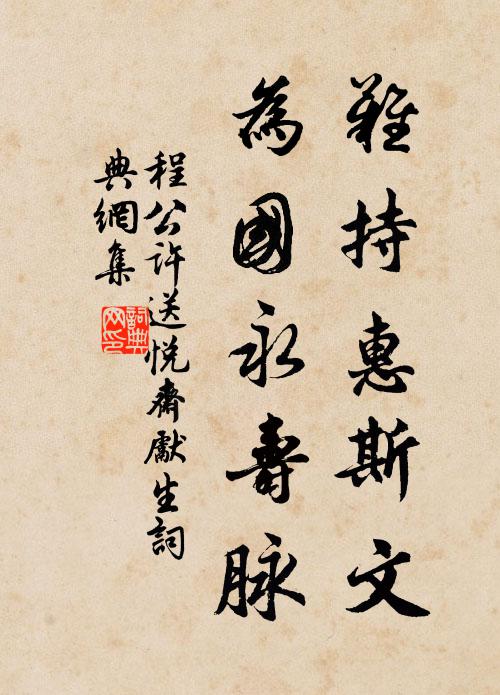 難持惠斯文
為國永壽脉
程公許送悅齋獻生詞
典網集
詞典網印